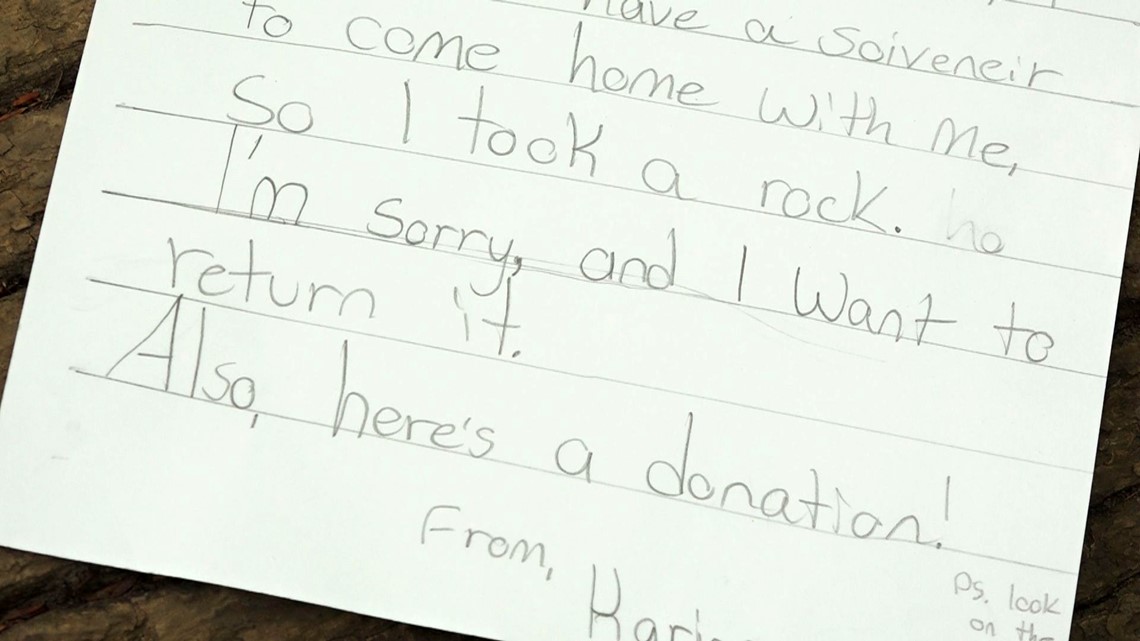 have a soiveneir
to come home with me,
So I took a rock.
I'm sorry, and I want to
return it.
Also, here's a donation!
From,
Ps. look
on